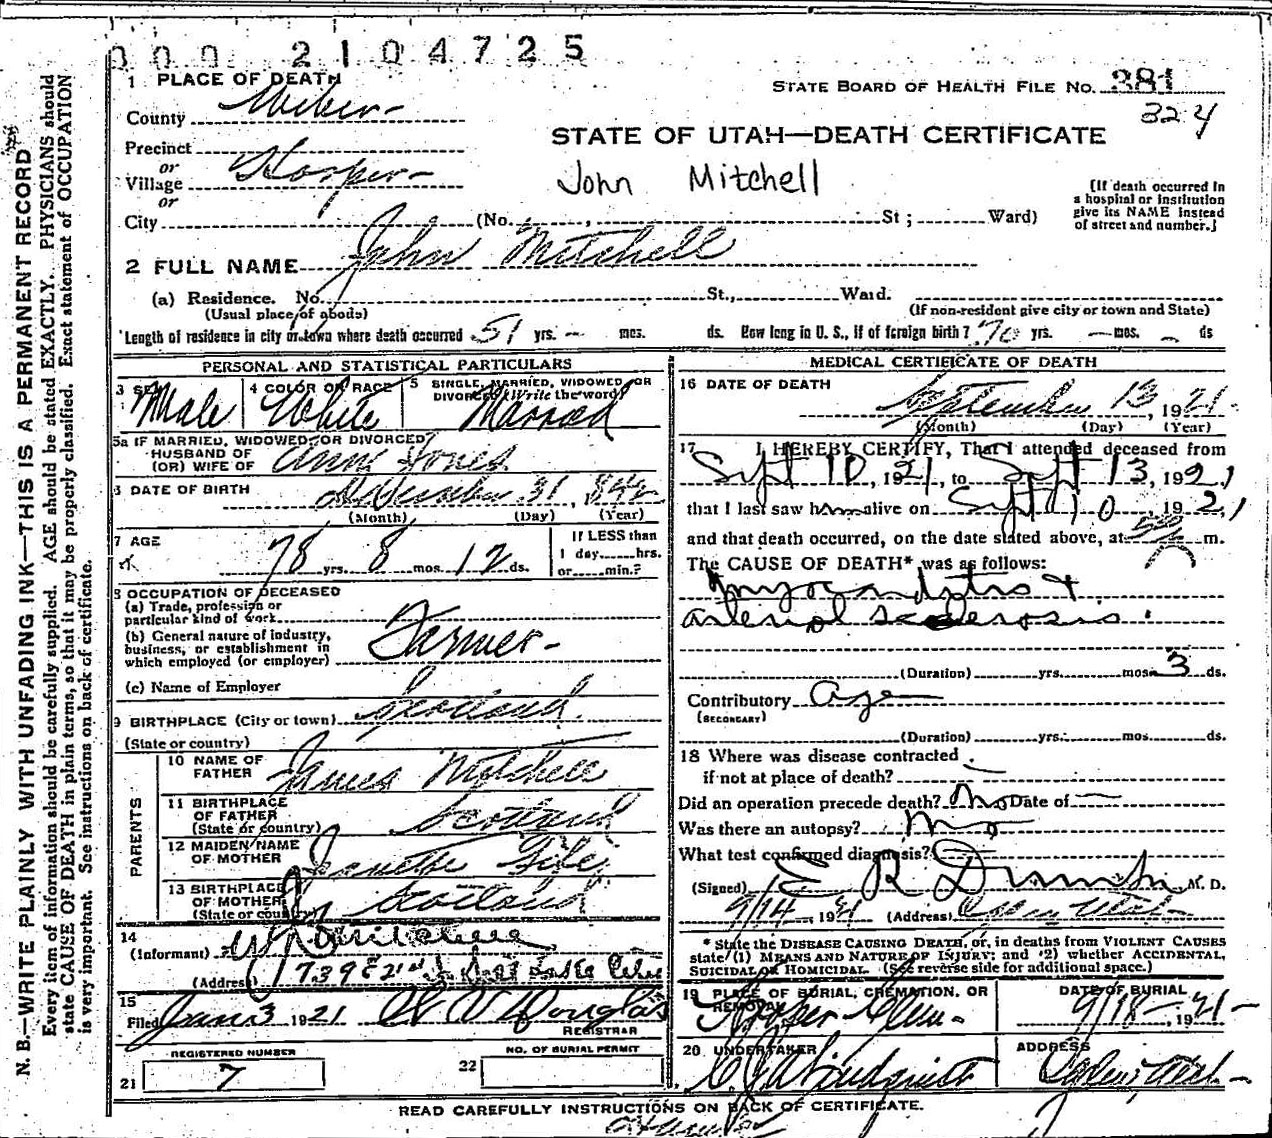 000 2104725
1 PLACE OF DEATH
STATE BOARD OF HEALTH FILE NO. 381
324
County Weber
STATE OF UTAH—DEATH CERTIFICATE
Precinct
or
Village Hooper
John Mitchell
or
[If death occurred in a hospital or institution give its NAME instead of street and number.]
City (No. , St ; Ward)
2 FULL NAME John Mitchell
(a) Residence. No. St., Ward.
(Usual place of abode) (If non-resident give city or town and State)
Length of residence in city or town where death occurred 51 yrs. – mos. ds. How long in U. S., if of foreign birth? 70 yrs. — mos. – ds
PERSONAL AND STATISTICAL PARTICULARS
3 SEX Male
4 COLOR OR RACE White
5 SINGLE, MARRIED, WIDOWED OR DIVORCED (Write the word) Married
5a IF MARRIED, WIDOWED, OR DIVORCED
HUSBAND OF
(OR) WIFE OF Ann Jones
6 DATE OF BIRTH December 31, 1842
(Month) (Day) (Year)
7 AGE
78 yrs. 8 mos. 12 ds.
If LESS than
1 day, hrs.
or min.?
8 OCCUPATION OF DECEASED
(a) Trade, profession or
particular kind of work
(b) General nature of industry,
business, or establishment in
which employed (or employer) Farmer
(c) Name of Employer
9 BIRTHPLACE (City or town) Scotland
(State or country)
PARENTS
10 NAME OF
FATHER James Mitchell
11 BIRTHPLACE
OF FATHER
(State or country) Scotland
12 MAIDEN NAME
OF MOTHER Janette Fife
13 BIRTHPLACE
OF MOTHER
(State or country) Scotland
14
(Informant) Mitchell
(Address) 739 E 21st S. Salt Lake
15
Filed Jan 3 1921 W V Douglas
REGISTRAR
REGISTERED NUMBER
21 7
NO. OF BURIAL PERMIT
22
MEDICAL CERTIFICATE OF DEATH
16 DATE OF DEATH
September 13, 1921
(Month) (Day) (Year)
17 I HEREBY CERTIFY, That I attended deceased from
Sept 10, 1921, to Sept 13, 1921
that I last saw him alive on Sept 10, 1921
and that death occurred, on the date stated above, at m.
The CAUSE OF DEATH* was as follows:
Myocarditis +
arterial sclerosis.
(Duration) yrs. mos. 3 ds.
Contributory Age
(SECONDARY)
(Duration) yrs. mos. ds.
18 Where was disease contracted
if not at place of death?
Did an operation precede death? No Date of —
Was there an autopsy? No
What test confirmed diagnosis?
(Signed) E R M. D.
9/14, 1921 (Address) Ogden Utah
* State the DISEASE CAUSING DEATH, or, in deaths from VIOLENT CAUSES
state (1) MEANS AND NATURE OF INJURY; and (2) whether ACCIDENTAL,
SUICIDAL, OR HOMICIDAL. (See reverse side for additional space.)
19 PLACE OF BURIAL, CREMATION, OR
REMOVAL
Hooper Cem.
DATE OF BURIAL
9/18–, 1921–
20 UNDERTAKER
ADDRESS
Ogden, Utah
READ CAREFULLY INSTRUCTIONS ON BACK OF CERTIFICATE.
N. B.—WRITE PLAINLY WITH UNFADING INK—THIS IS A PERMANENT RECORD
Every item of information should be carefully supplied. AGE should be stated EXACTLY. PHYSICIANS should
state CAUSE OF DEATH in plain terms, so that it may be properly classified. Exact statement of OCCUPATION
is very important. See instructions on back of certificate.